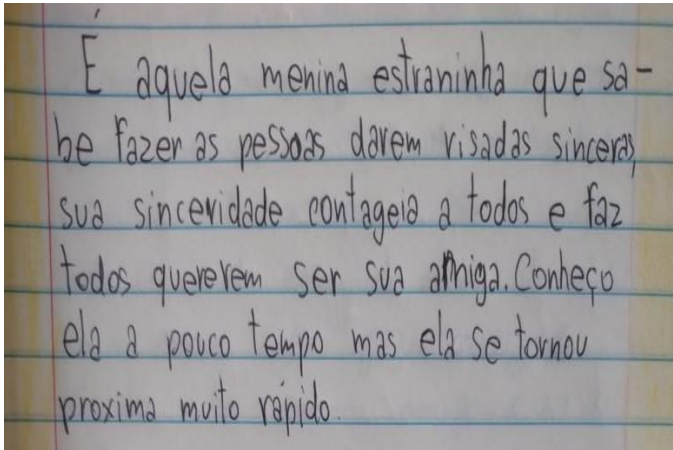 É aquela menina estraninha que sa-
be fazer as pessoas darem risadas sinceras,
sua sinceridade contageia a todos e faz
todos quererem ser sua amiga. Conheço
ela a pouco tempo mas ela se tornou
proxima muito rápido.